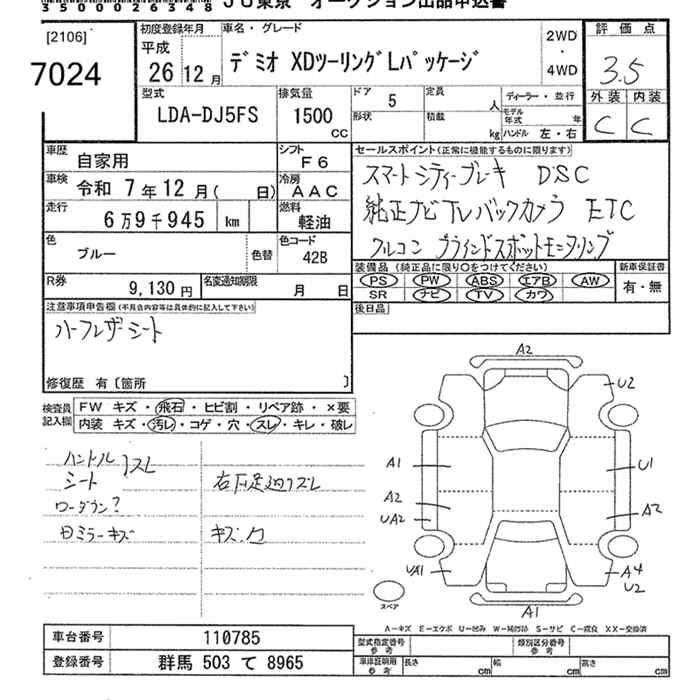 3500026348 JU東京 オークション出品申込書
[2106]
7024
初度登録年月
平成
26年12月
車名・グレード
デミオ XDツーリングLパッケージ
2WD
・
4WD
評価点
3.5
外装 内装
C C
型式
LDA-DJ5FS
排気量
1500
CC
ドア
5
形状
定員
人
積載
kg
ディーラー・並行
モデル年式 年
ハンドル 左・右
車歴
自家用
シフト
F6
車検
令和 7年12月( 日)
冷房
AAC
走行
6万9千945 km
燃料
軽油
色
ブルー
色替
色コード
42B
R券
9,130円
名変通知期限
月 日
セールスポイント(正常に機能するものに限ります)
スマートシティーブレーキ DSC
純正ナビTVバックカメラ ETC
クルコン ブラインドスポットモニタリング
装備品(純正品に限り○をつけてください)
PS PW ABS エアB AW
SR ナビ TV カワ
新車保証書
有・無
後日品
注意事項申告欄(不具合内容等は具体的に記入して下さい)
ハーフレザーシート
修復歴 有〔箇所 〕
検査員記入欄
FW キズ・飛石・ヒビ割・リペア跡・×要
内装 キズ・汚レ・コゲ・穴・スレ・キレ・破レ
ハンドル
シート
スレ
ローダウン?
右下足廻りズレ
ミラーキズ
キズ・凹
A2
U2
A1
U1
A2
A2
UA2
UA1
A4
U2
A1
スペア
A－キズ E－エクボ U－凹み W－補修跡 S－サビ C－腐食 XX－交換済
車台番号
110785
登録番号
群馬 503 て 8965
型式指定番号
参考
類別区分番号
参考
車庫証明用
参考
長さ cm
幅 cm
高さ cm